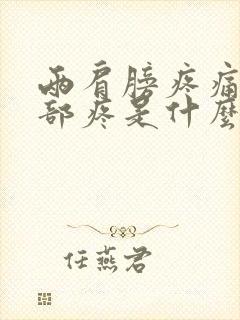 兩肩膀疼痛
部疼是什麼
任燕君